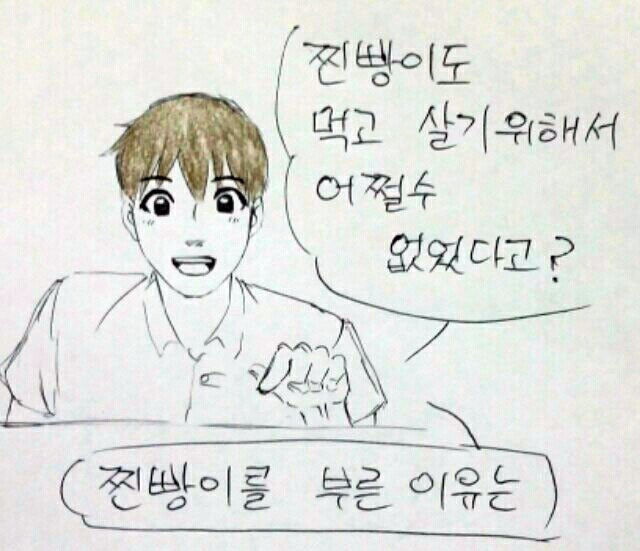 찐빵이도
먹고 살기위해서
어쩔수
없었다고?
찐빵이를 부른 이유는